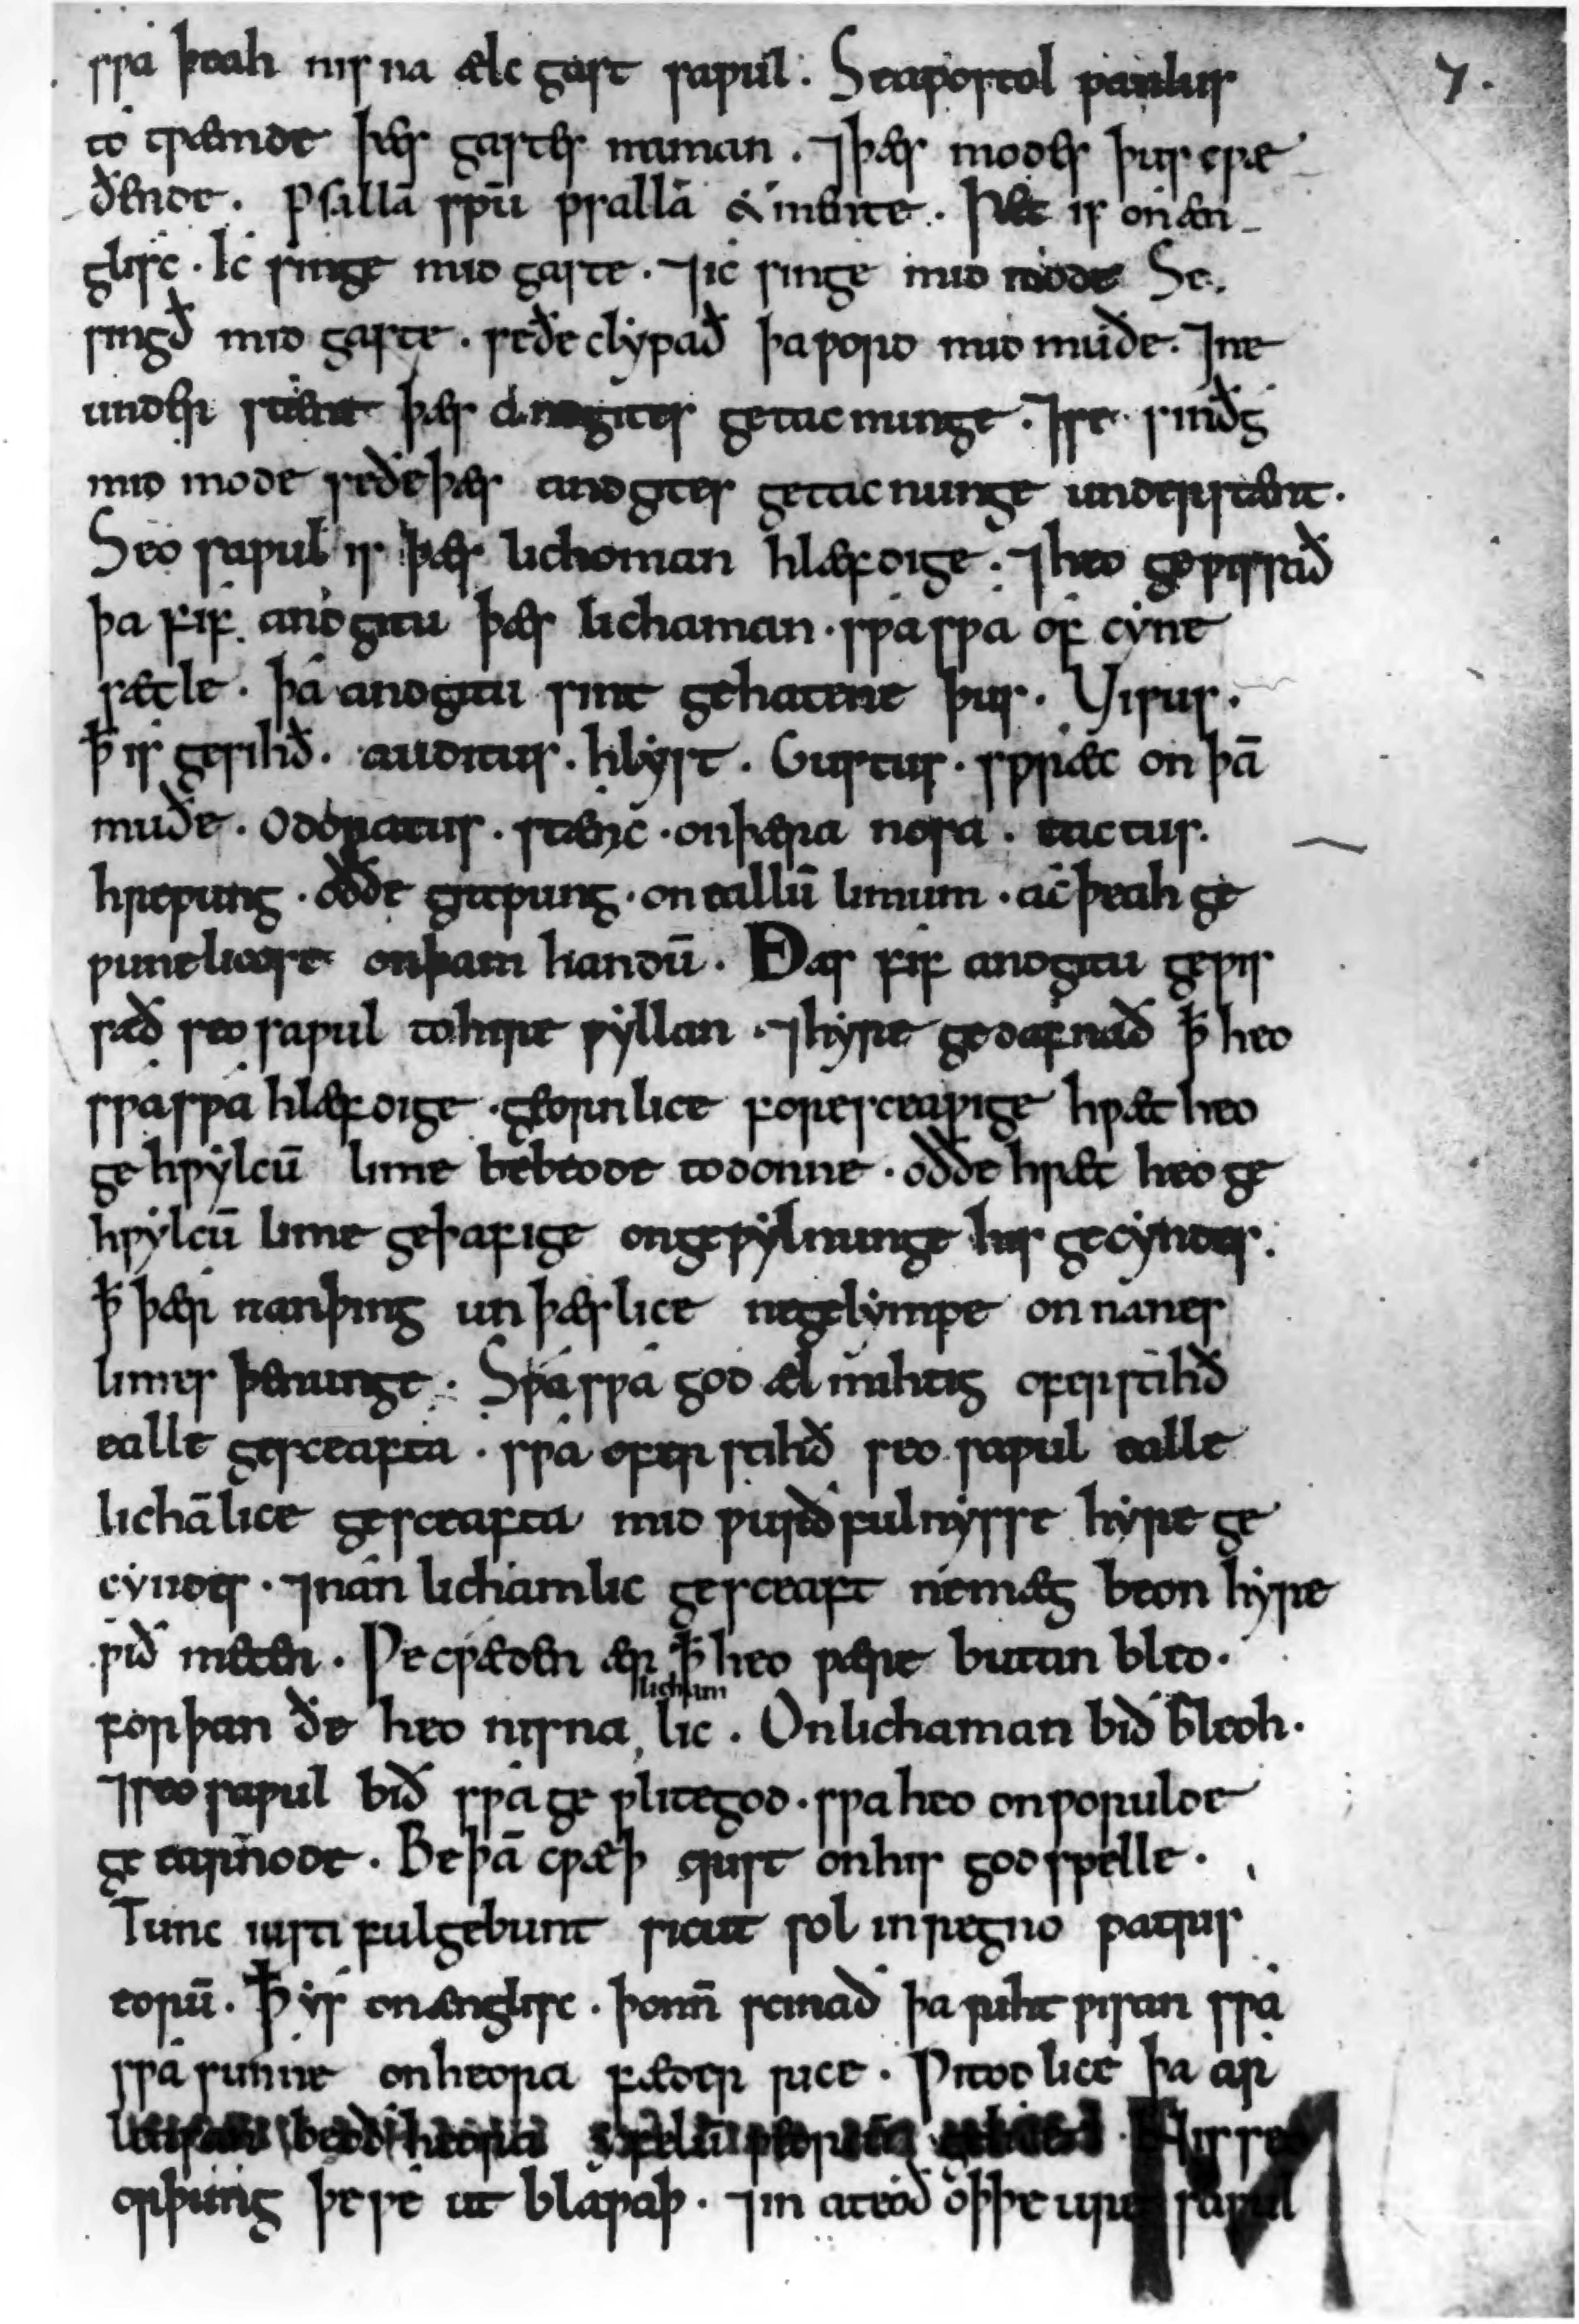 swa þeah nis na ælc gast sawul. Se apostol paulus
to twæmde þæs gastes naman. ⁊ þæs modes þus cwe
ðende. Psallā spū psallā & mente. Þæt is on æn-
glisc. Ic singe mid gaste. ⁊ ic singe mid mode Se.
singð mid gaste. se ðe clypað þa word mid muðe. ⁊ ne
understent þæs andgites getacnunge. ⁊ se singð
mid mode se ðe þæs andgites getacnunge understent.
Seo sawul is þæs lichoman hlæfdige. ⁊ heo gewissað
þa fif andgitu þæs lichaman. swa swa of cyne
setle. þa andgitu sint gehatene þus. Visus.
ꝥ is gesihð. auditus. hlyst. Gustus. swæc on þā
muðe. Odoratus. stenc. on þæra nosa. tactus.
hrepung. oððe grapung. on eallū limum. ac þeah ge
wunelicost on þam handū. Ðas fif andgitu gewis
sað seo sawul to hire wyllan. ⁊ hyre gedafnað ꝥ heo
swa swa hlæfdige. geornlice foresceawige hwæt heo
gehwylcū lime bebeode to donne. oððe hwæt heo ge
hwylcū lime geþafige on gewylnunge his gecyndes.
ꝥ þær nan þing unþæslice ne gelympe on nanes
limes þenunge. Swa swa god ælmihtig oferstihð
ealle gesceafta. swa oferstihð seo sawul ealle
lichālice gesceafta mid wurðfulnysse hyre ge
cyndes. ⁊ nan lichamlic gesceaft ne mæg beon hyre
wið meten. We cwædon ær ꝥ heo wære butan bleo.
forþan ðe heo nis na lichamlic. On lichaman bið bleoh.
⁊ seo sawul bið swa gewlitegod. swa heo on worulde
geearnode. Be þā cwæþ crist on his godspelle.
Tunc iusti fulgebunt sicut sol in regno patris
eorū. ꝥ ys on ænglisc. þonn̄ scinað þa rihtwisan swa
swa sunne on heora fæder rice. Witodlice þa ar
leasan beoð heora
orþung þe we ut blawaþ. ⁊ in ateoð oþþe ure sawul